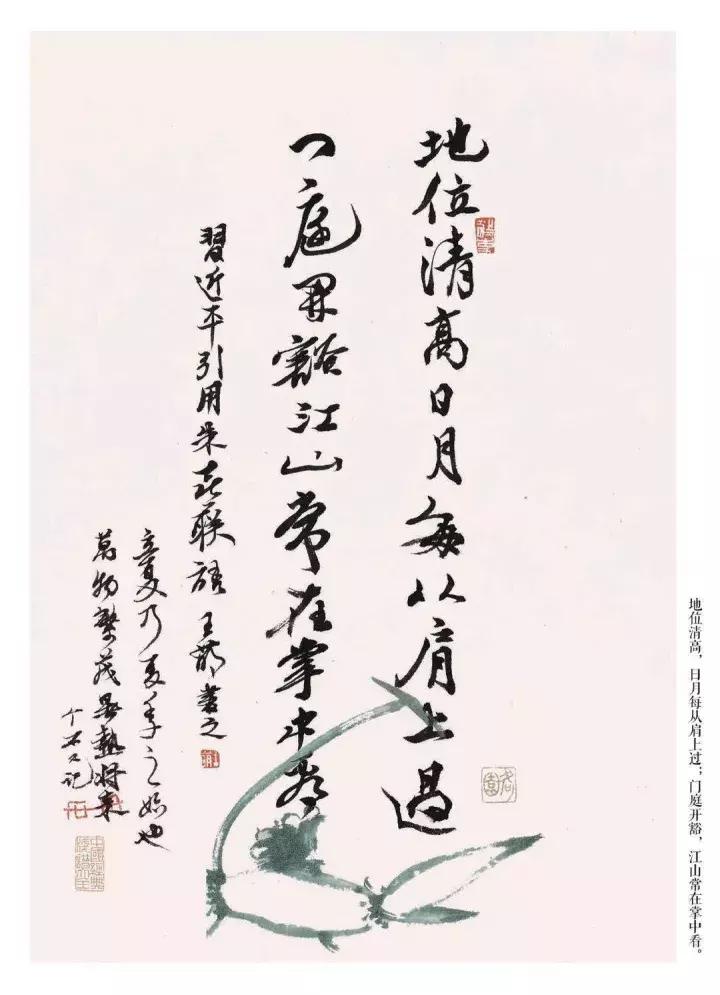 地位清高日月每从肩上過
门庭開豁江山常在掌中看
習近平引用朱熹联語 王 書之
立夏乃夏季之始也
萬物繁茂暑熱将来
十石又记
地位清高，日月每从肩上过；门庭开豁，江山常在掌中看。